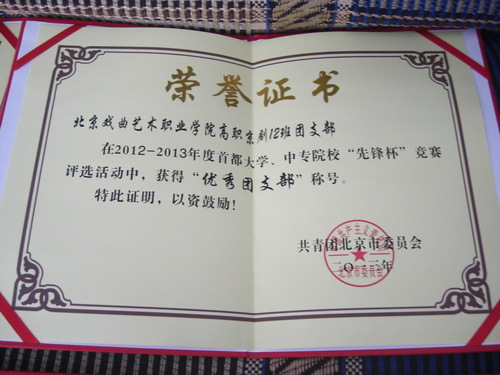 荣誉证书
北京戏曲艺术职业学院高职京剧12班团支部
在2012-2013年度首都大学、中专院校“先锋杯”竞赛
评选活动中，获得“优秀团支部”称号。
特此证明，以资鼓励！
共青团北京市委员会
二〇一三年
北京市委员会